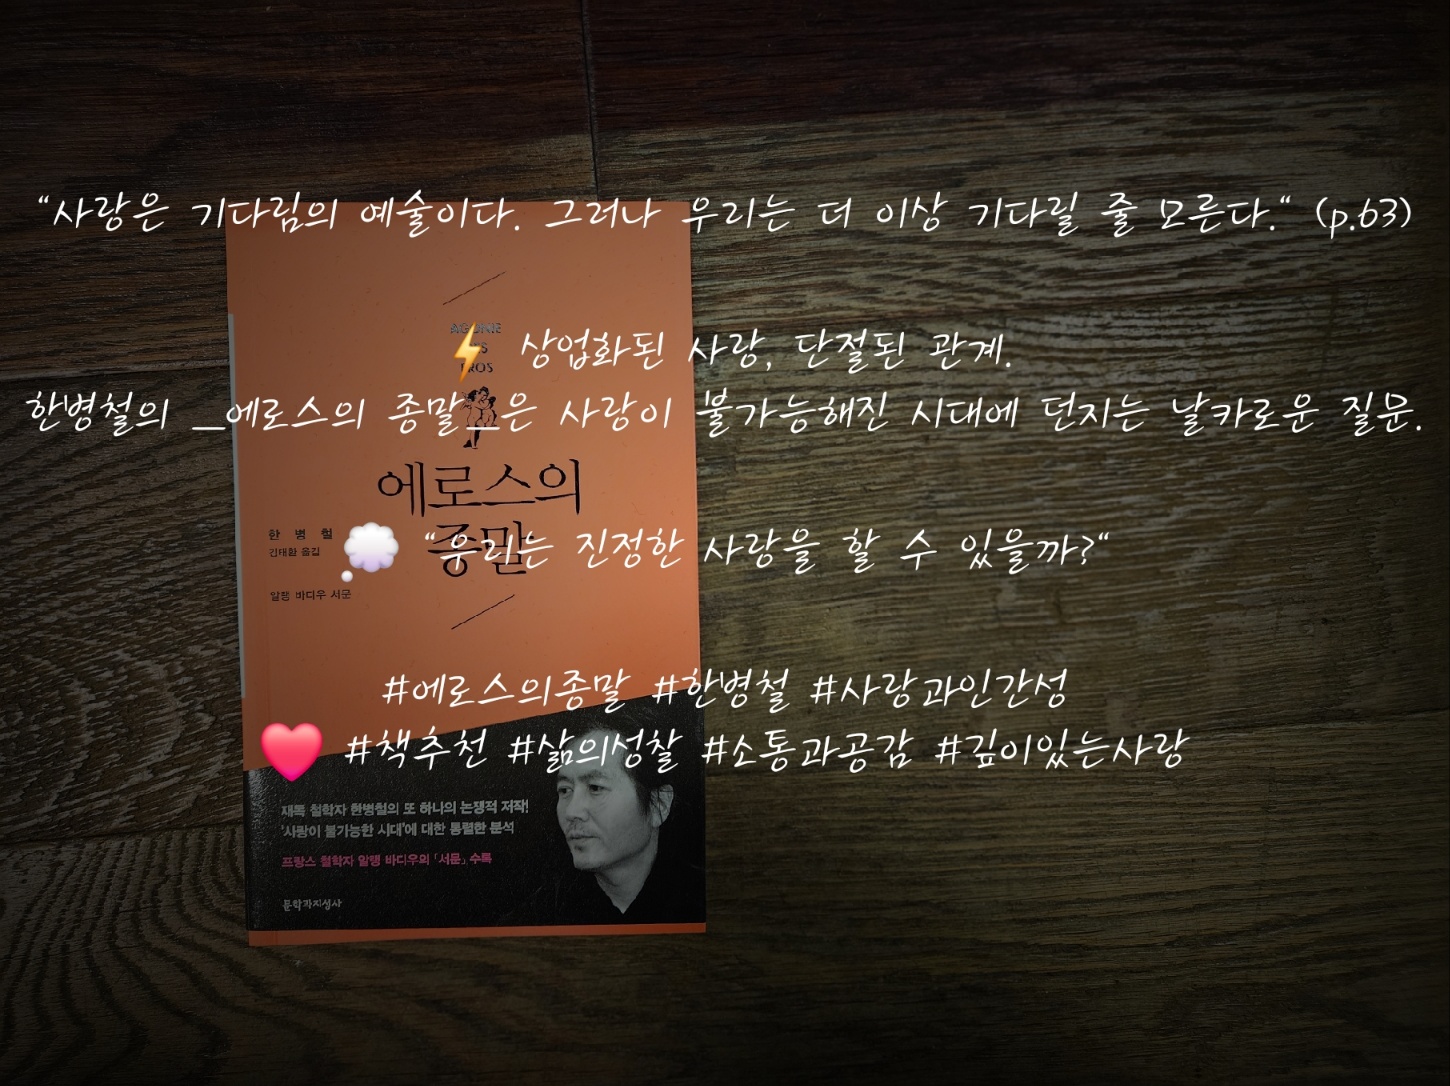 “사랑은 기다림의 예술이다. 그러나 우리는 더 이상 기다릴 줄 모른다.“ (p.63)
⚡ 상업화된 사랑, 단절된 관계.
한병철의 _에로스의 종말_은 사랑이 불가능해진 시대에 던지는 날카로운 질문.
💭 “우리는 진정한 사랑을 할 수 있을까?“
#에로스의종말 #한병철 #사랑과인간성
❤️ #책추천 #삶의성찰 #소통과공감 #깊이있는사랑
EROS
에로스의
종말
한병철
김태환 옮김
알랭 바디우 서문
재독 철학자 한병철의 또 하나의 논쟁적 저작!
'사랑이 불가능한 시대'에 대한 통렬한 분석
프랑스 철학자 알랭 바디우의 「서문」 수록
문학과지성사